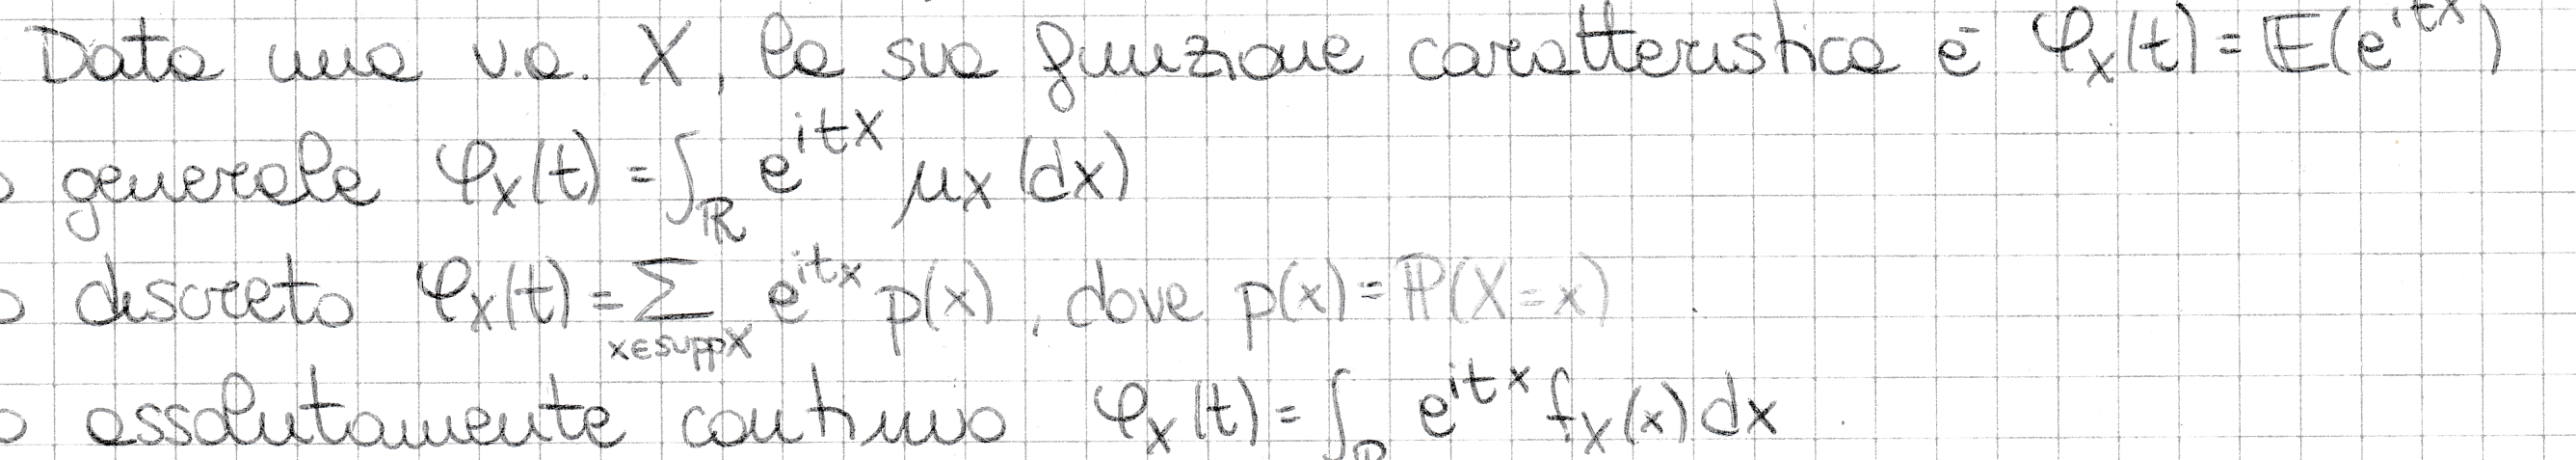 Data una v.a. X, la sua funzione caratteristica è φ_X(t) = 𝔼(e^{itX})
generale φ_X(t) = ∫_ℝ e^{itX} μ_X(dx)
discreto φ_X(t) = Σ_{x∈suppX} e^{itx} p(x), dove p(x) = ℙ(X=x)
assolutamente continuo φ_X(t) = ∫_ℝ e^{itx} f_X(x) dx